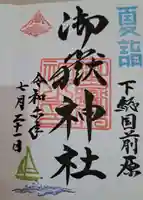 夏詣
下総国前原
御嶽神社
令和六年
七月二十一日